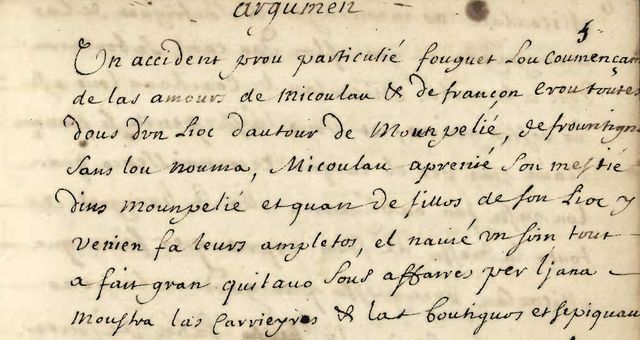 argumen
5
Un accident prou particulié fouguet Lou Coumençam
de las amours de Micoulau & de françon Erou toutes
dous d'vn Lioc d'autour de Mounpelié, de frountigna
Sans lou nouma, Micoulau aprenié son mestié
dins Mounpelié et quan de fillos de son Lioc y
venien fa leurs ampletos, el navié vn soin tout
a fait gran quitavo sous affaires per ljana
Moustra las Carrieyros & las boutiguos et sepiquau